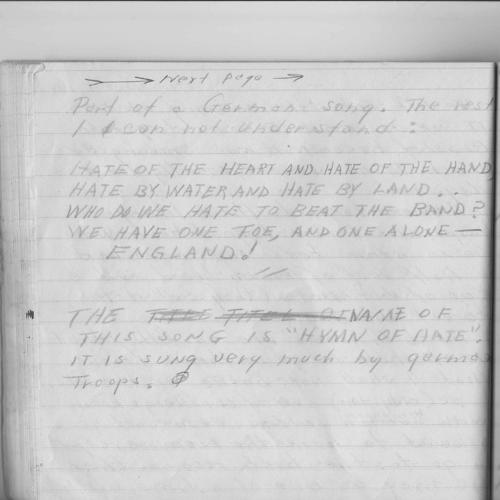 → Next page →
Part of a German song. The rest
I can not understand:
HATE OF THE HEART AND HATE OF THE HAND
HATE BY WATER AND HATE BY LAND..
WHO DO WE HATE TO BEAT THE BAND?
WE HAVE ONE FOE, AND ONE ALONE —
ENGLAND!
THE TITLE TITEL OF NAME OF
THIS SONG IS "HYMN OF HATE".
IT IS SUNG very much by german
Troops.